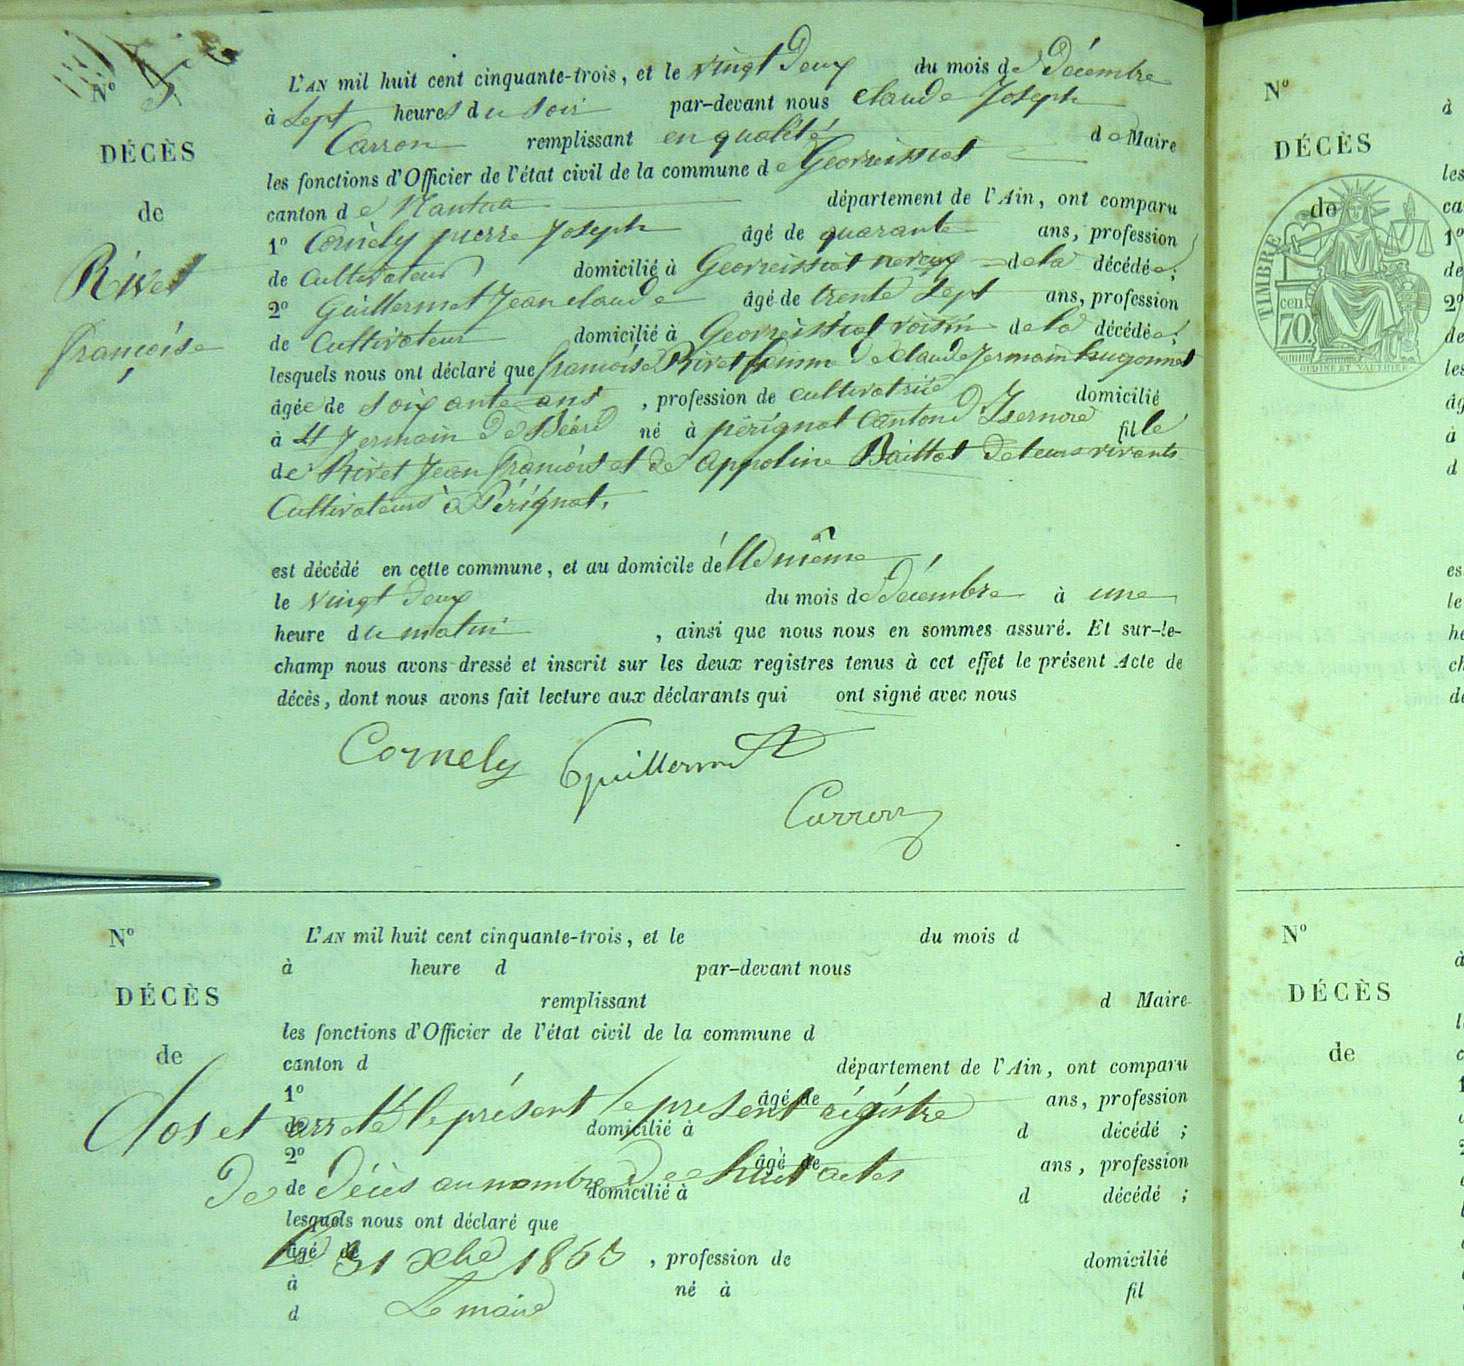 N° 8
DÉCÈS
de
Rivet
françoise
L'AN mil huit cent cinquante-trois, et le vingt Deux du mois de Décembre
à Sept heures du soir par-devant nous Claude Joseph
Carron remplissant en qualité de Maire
les fonctions d'Officier de l'état civil de la commune de Géovreissiat
canton de Nantua département de l'Ain, ont comparu
1° Cornely pierre Joseph âgé de quarante ans, profession
de Cultivateur domicilié à Géovreissiat neveux de la décédée;
2° Guillermet Jean claude âgé de trente Sept ans, profession
de Cultivateur domicilié à Géovreissiat voisin de la décédée;
lesquels nous ont déclaré que françoise Rivet femme de Claude Jermain hugonnet
âgée de soixante ans, profession de cultivatrice domicilié
à St Jermain de Béard né à pérignat Canton D'Isernore fille
de Rivet Jean françois et de Appoline Baillat de leurs vivants
Cultivateurs à Pérignat,
est décédé en cette commune, et au domicile d'elle même,
le vingt Deux du mois de Décembre à une
heure du matin, ainsi que nous nous en sommes assuré. Et sur-le-
champ nous avons dressé et inscrit sur les deux registres tenus à cet effet le présent Acte de
décès, dont nous avons fait lecture aux déclarants qui ont signé avec nous
Cornely Guillermet
Carron
N°
DÉCÈS
de
L'AN mil huit cent cinquante-trois, et le du mois d
à heure d par-devant nous
remplissant d Maire
les fonctions d'Officier de l'état civil de la commune d
canton d département de l'Ain, ont comparu
1° âgé de ans, profession
de domicilié à d décédé ;
2° âgé de ans, profession
de domicilié à d décédé ;
lesquels nous ont déclaré que
âgé de , profession de domicilié
à né à fil
d
Clos et arreté le présent le present régistre
De Décès au nombre De huit actes
Le 31 Xbre 1853
Le maire
N°
DÉCÈS
de
TIMBRE
cen.
70
OUDINÉ ET VAUTHIER
N°
DÉCÈS
de